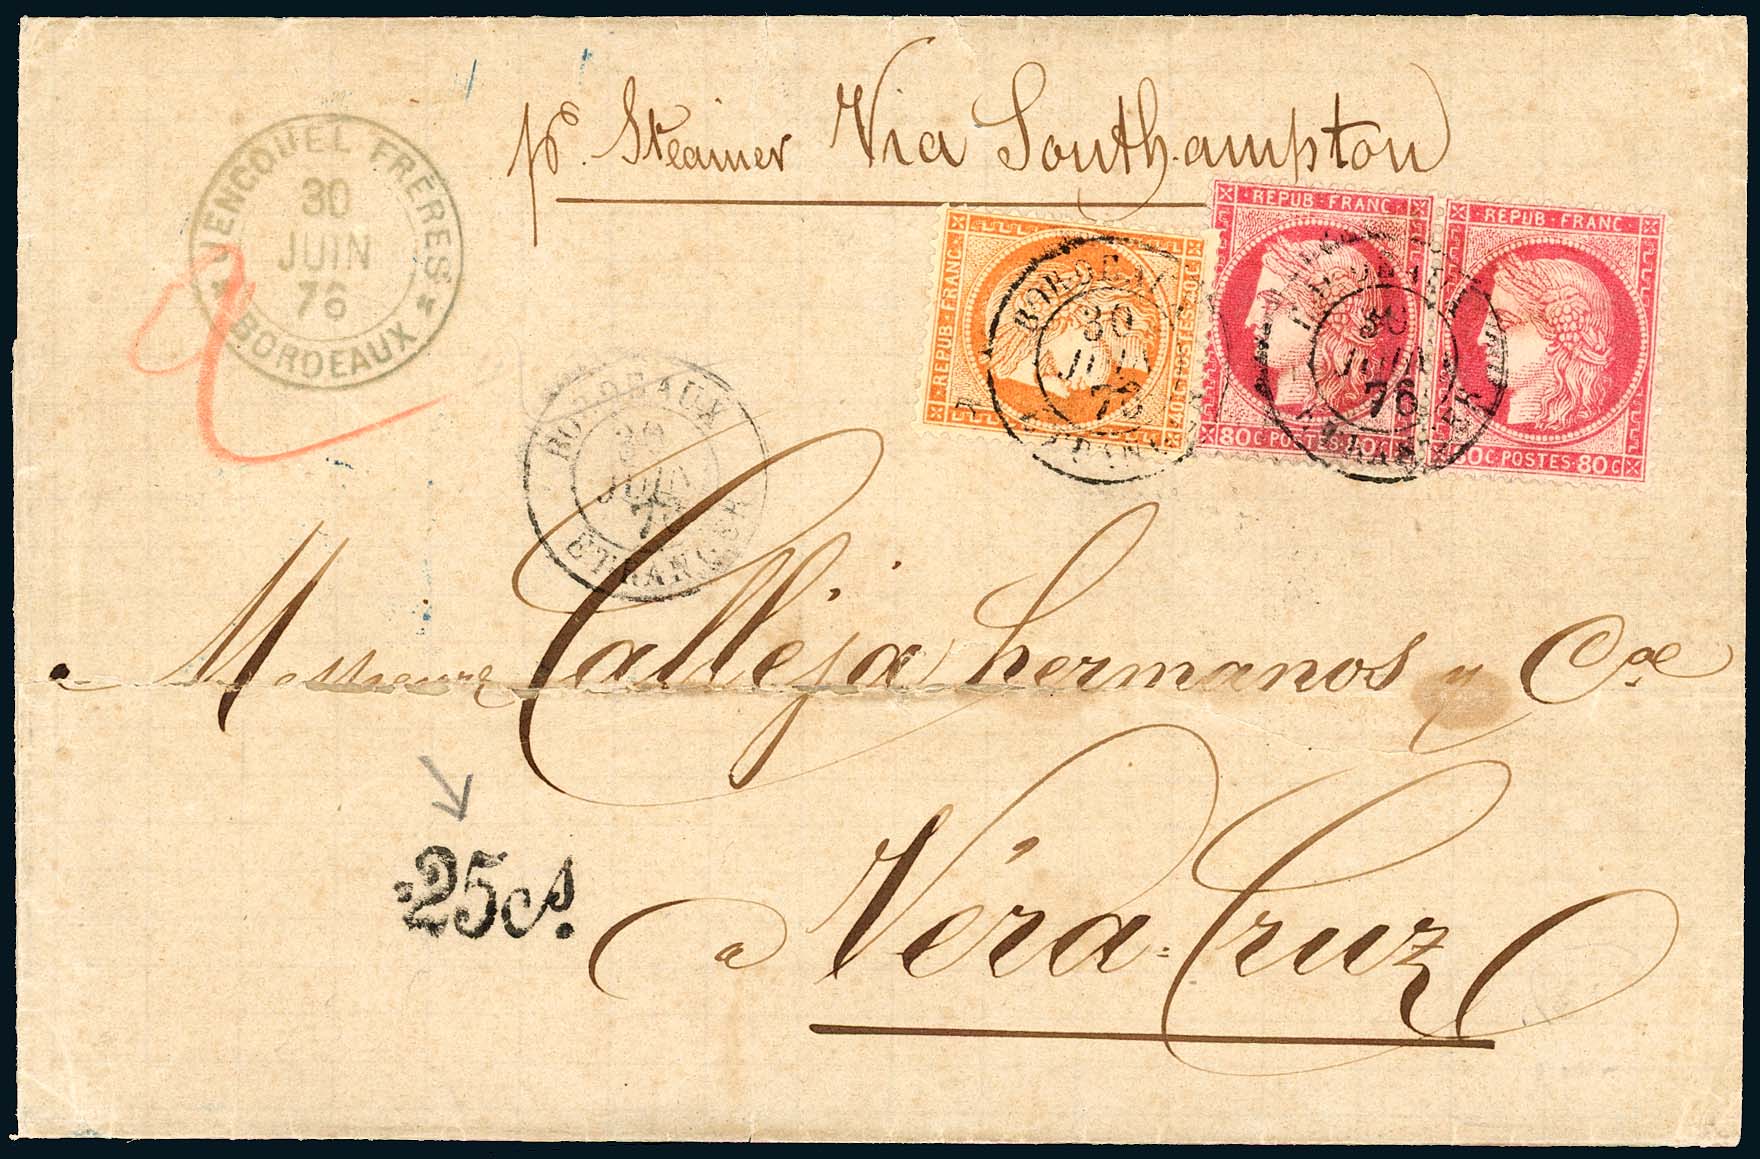 pr. Steamer Via Southampton
JENCQUEL FRÈRES
30
JUIN
76
BORDEAUX
REPUB·FRANC
40C·POSTES·40C
BORDEAUX
30
JUIN
76
ETRANGER
REPUB·FRANC
80C·POSTES·80C
BORDEAUX
30
JUIN
76
ETRANGER
REPUB·FRANC
80C·POSTES·80C
BORDEAUX
30
JUIN
76
ETRANGER
Messieurs Calleja hermanos y Cie
25cs.
a Véra-Cruz